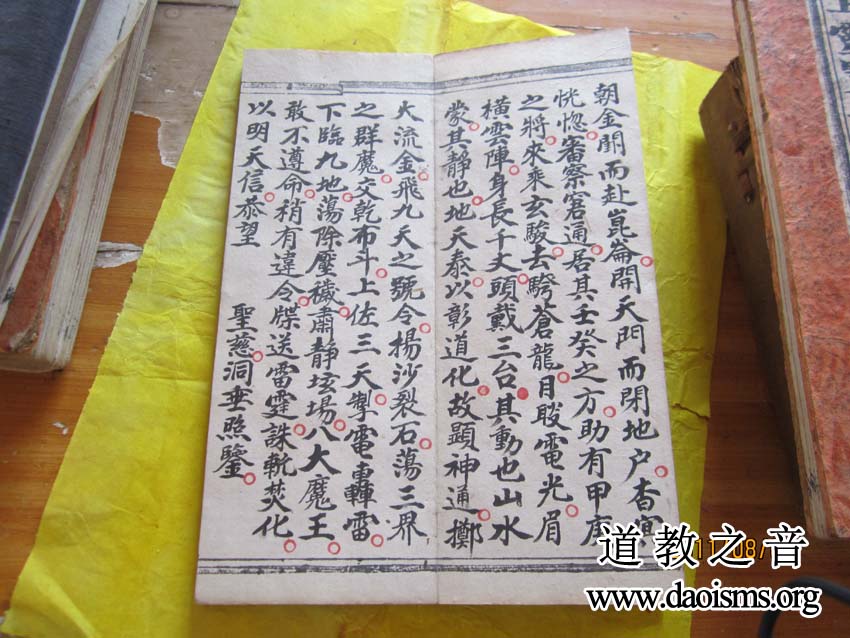 朝金闕而赴崑崙開天門而閉地户杳冥
恍惚審察窈通居其壬癸之方助有甲庚
之將來乘玄駿去跨蒼龍目睃電光眉
橫雲陣身長千丈頭戴三台其動也山水
蒙其静也地天泰以彰道化故顯神通擲
大流金飛九天之號令揚沙裂石蕩三界
之群魔交乾布斗上佐三天掣電轟雷
下臨九地蕩除壓穢肅静垓場八大魔王
敢不遵命稍有違令牒送雷霆誅斬焚化
以明天信恭望
聖慈洞垂照鑒
道教之音
www.daoisms.org